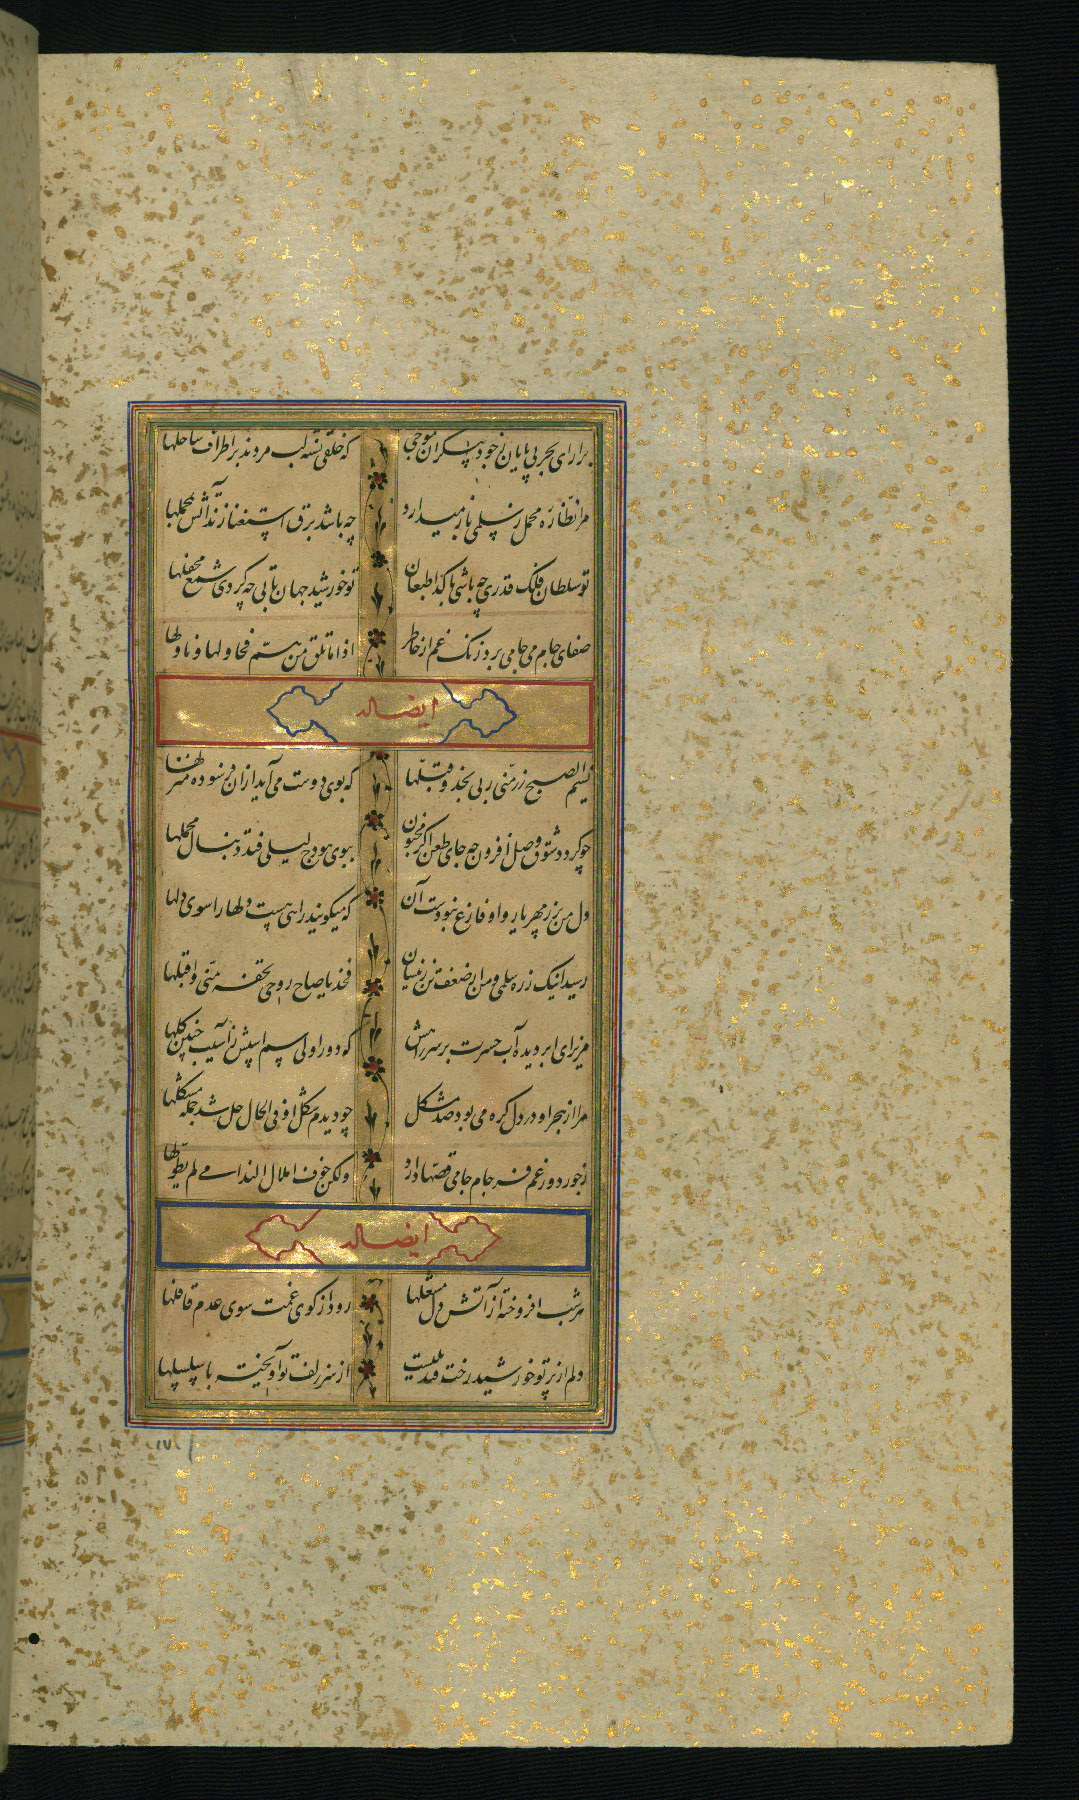 برآرای بحر بی پایان ز جود بیکران موجی که خلقی تشنه لب مردند بر اطراف ساحلها
مرا نظاره محمل ز سلمی باز میدارد چه باشد برق استغنا زند آتش بمحملها
تو سلطان فلک قدری چه باشی با گدا طبعان تو خورشید جهان تابی چه گردی شمع محفلها
صفای جام می جامی برد زنگ غم از خاطر اذا ما تلق من هم فحاولها و ناولها
ایضا له
نسیم الصبح زر منی ربی نجد و قبلها که بوی دوست می آید ازان فرسوده منزلها
چو گردد شوق وصل افزون چه جای طعن اگر مجنون ببوی هودج لیلی فتد دنبال محملها
دل من پر ز مهر یار و او فارغ نبودست آن که میگویند راهی هست دلها را سوی دلها
رسید اینک ز ره سلمی و من از ضعف تن زینسان فخذ یا صاح روحی تحفة منی و اقبلها
مریز ای ابر دیده آب حسرت بر سر راهش که دور اولی سم اسپش ز آسیب چنین گلها
مرا از هجر او در دل گره می بود صد مشکل چو دیدم شکل او فی الحال حل شد جمله مشکلها
ز جور دور غم فرجام جامی قصها دارد ولکن خوف املال الندامی لم یطولها
ایضا له
هر شب افروخته از آتش دل مشعلها رود از کوی غمت سوی عدم قافلها
دلم از پرتو خورشید رخت قندیلیست از سر زلف تو آویخته با سلسلها